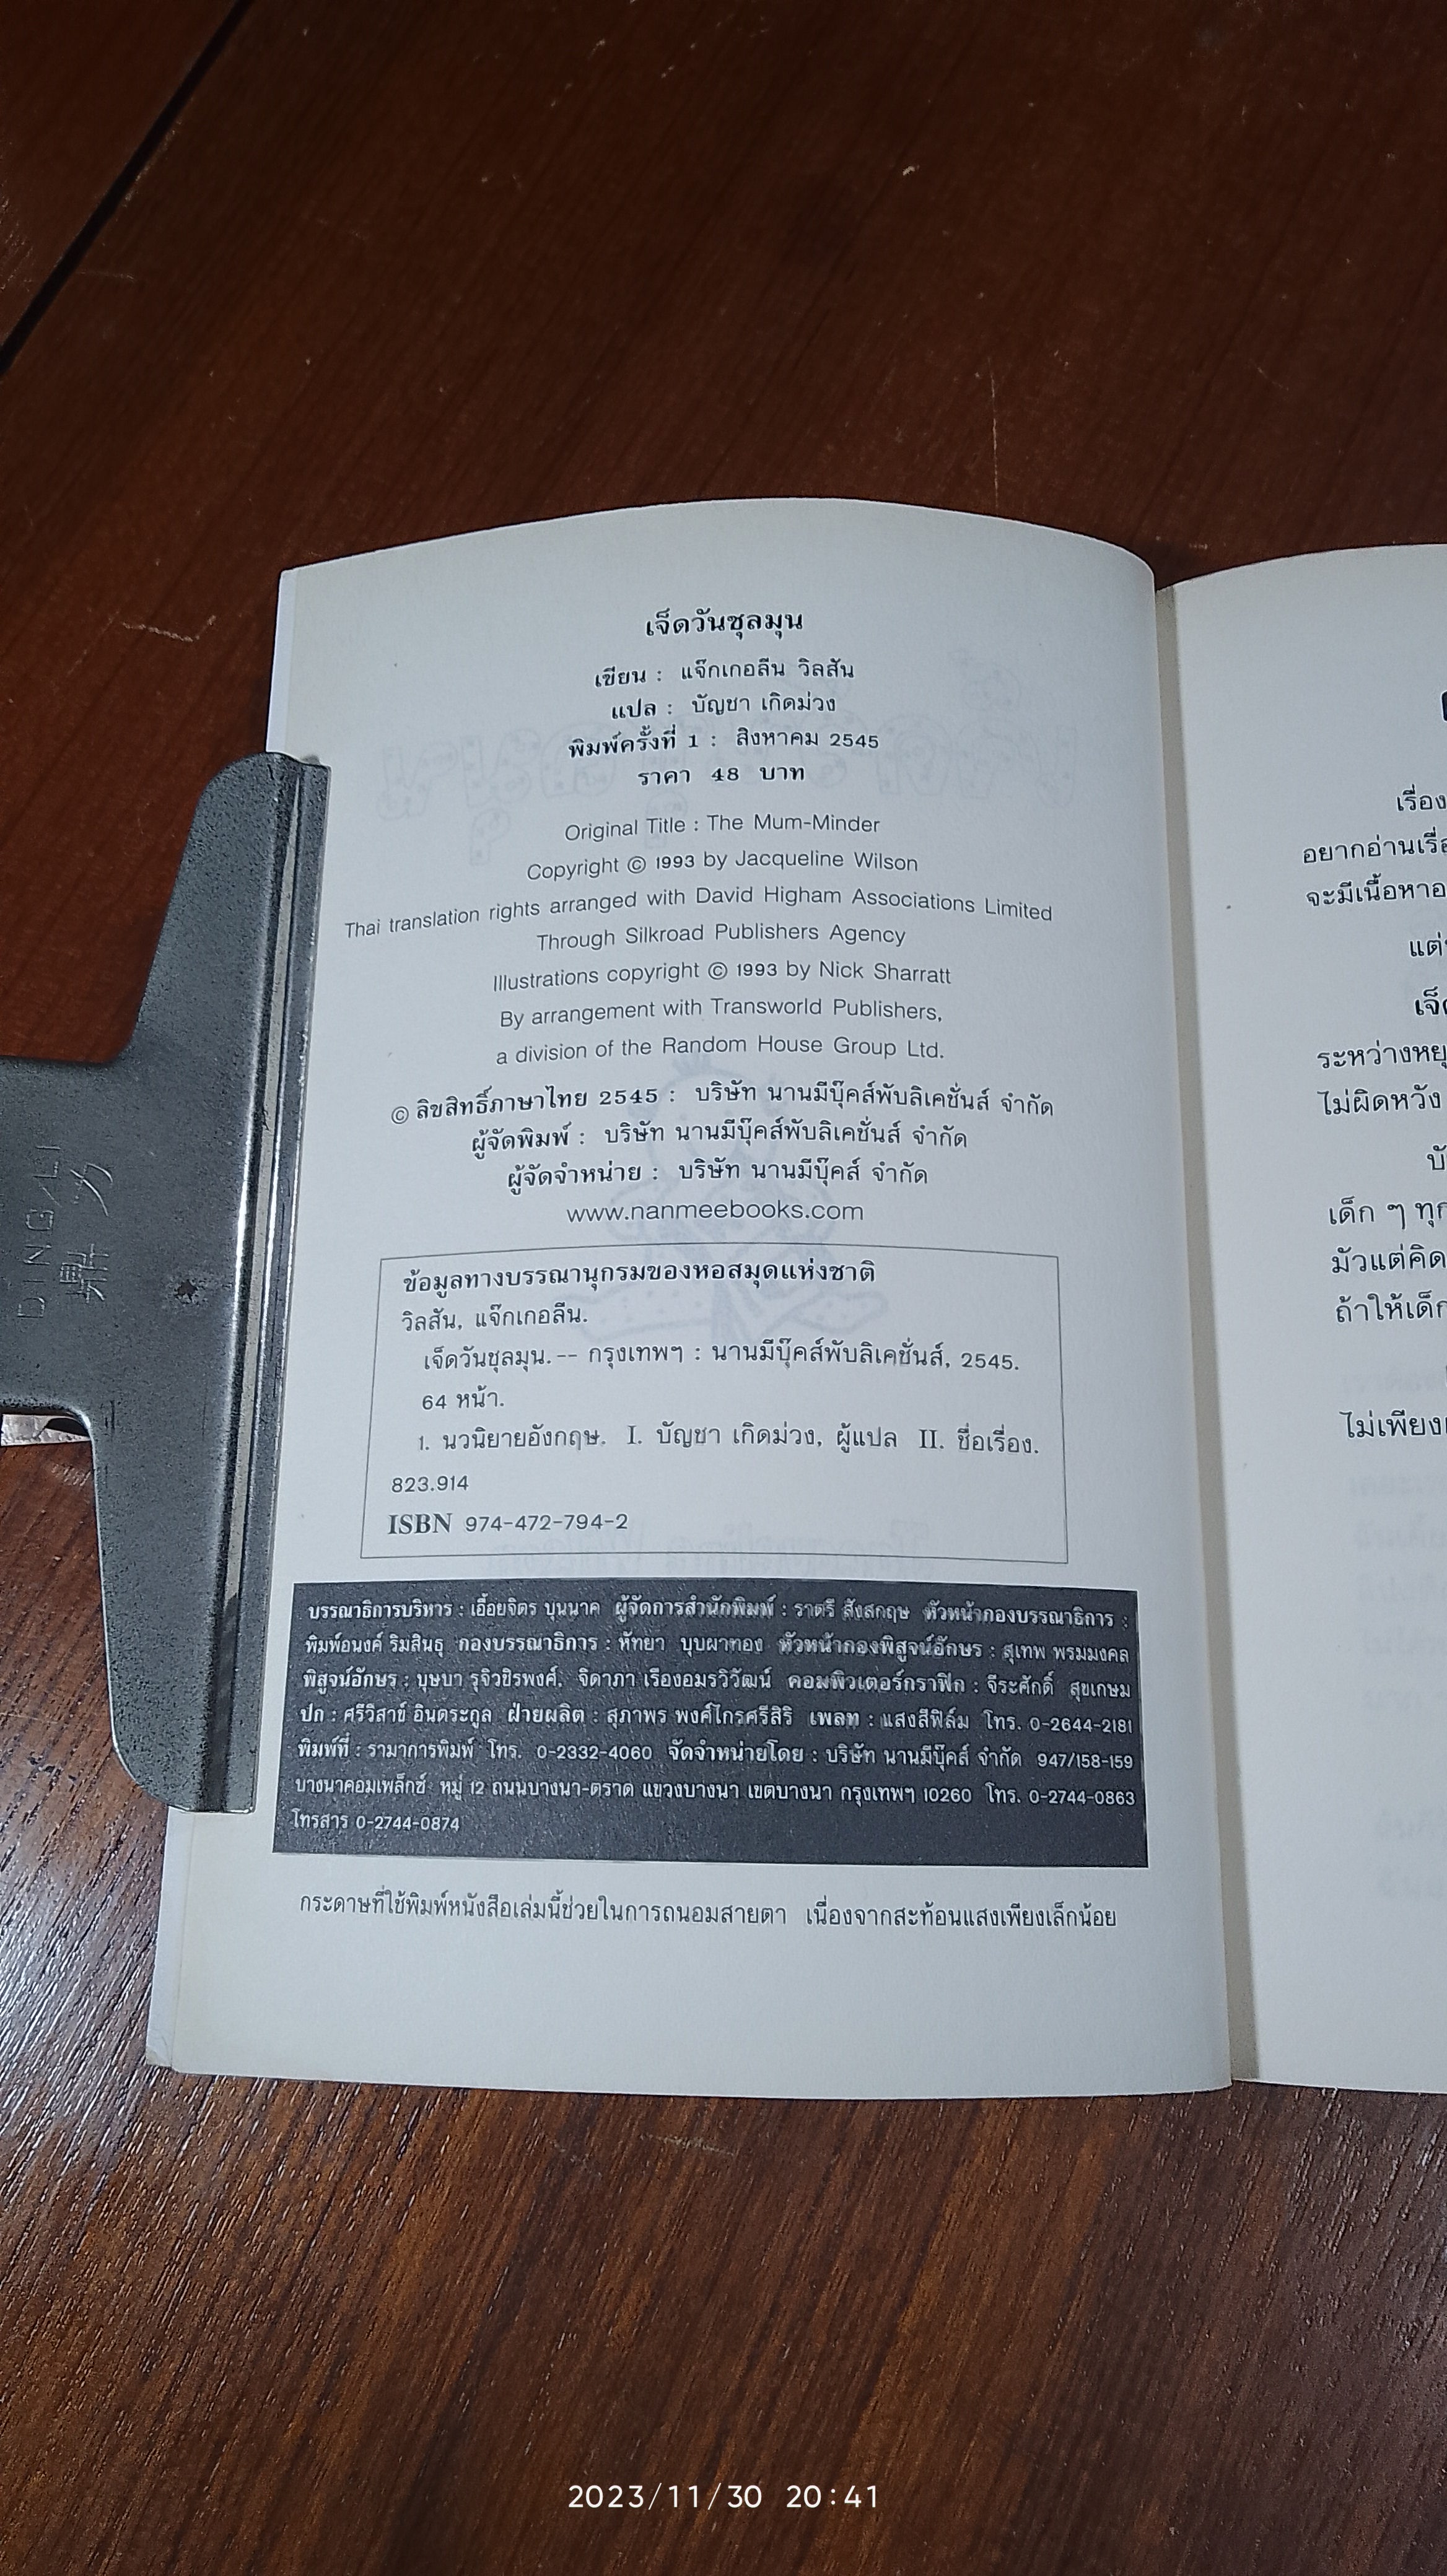 เจ็ดวันชุลมุน
เขียน : แจ๊กเกอลีน วิลสัน
แปล : บัญชา เกิดม่วง
พิมพ์ครั้งที่ 1 : สิงหาคม 2545
ราคา 48 บาท
Original Title : The Mum-Minder
Copyright © 1993 by Jacqueline Wilson
Thai translation rights arranged with David Higham Associations Limited
Through Silkroad Publishers Agency
Illustrations copyright © 1993 by Nick Sharratt
By arrangement with Transworld Publishers,
a division of the Random House Group Ltd.
© ลิขสิทธิ์ภาษาไทย 2545 : บริษัท นานมีบุ๊คส์พับลิเคชั่นส์ จำกัด
ผู้จัดพิมพ์ : บริษัท นานมีบุ๊คส์พับลิเคชั่นส์ จำกัด
ผู้จัดจำหน่าย : บริษัท นานมีบุ๊คส์ จำกัด
www.nanmeebooks.com
ข้อมูลทางบรรณานุกรมของหอสมุดแห่งชาติ
วิลสัน, แจ๊กเกอลีน.
เจ็ดวันชุลมุน.-- กรุงเทพฯ : นานมีบุ๊คส์พับลิเคชั่นส์, 2545.
64 หน้า.
1. นวนิยายอังกฤษ. I. บัญชา เกิดม่วง, ผู้แปล II. ชื่อเรื่อง.
823.914
ISBN 974-472-794-2
บรรณาธิการบริหาร : เอื้อยจิตร บุนนาค ผู้จัดการสำนักพิมพ์ : ราตรี สังสกฤษ หัวหน้ากองบรรณาธิการ :
พิมพ์อนงค์ ริมสินธุ กองบรรณาธิการ : หัทยา บุบผาทอง หัวหน้ากองพิสูจน์อักษร : สุเทพ พรมมงคล
พิสูจน์อักษร : บุษบา รุจิวชิรพงศ์, จิดาภา เรืองอมรวิวัฒน์ คอมพิวเตอร์กราฟิก : จีระศักดิ์ สุขเกษม
ปก : ศรีวิสาข์ อินดระกูล ฝ่ายผลิต : สุภาพร พงศ์ไกรศรีสิริ เพลท : แสงสีฟิล์ม โทร. 0-2644-2181
พิมพ์ที่ : รามาการพิมพ์ โทร. 0-2332-4060 จัดจำหน่ายโดย : บริษัท นานมีบุ๊คส์ จำกัด 947/158-159
บางนาคอมเพล็กซ์ หมู่ 12 ถนนบางนา-ตราด แขวงบางนา เขตบางนา กรุงเทพฯ 10260 โทร. 0-2744-0863
โทรสาร 0-2744-0874
กระดาษที่ใช้พิมพ์หนังสือเล่มนี้ช่วยในการถนอมสายตา เนื่องจากสะท้อนแสงเพียงเล็กน้อย
เรื่อง
อยากอ่านเรื่อ
จะมีเนื้อหาอ
แต่
เจ็ด
ระหว่างหยุ
ไม่ผิดหวัง
บั
เด็ก ๆ ทุก
มัวแต่คิด
ถ้าให้เด็ก
ไม่เพียง
DING/LI
鼎力
2023/11/30 20:41